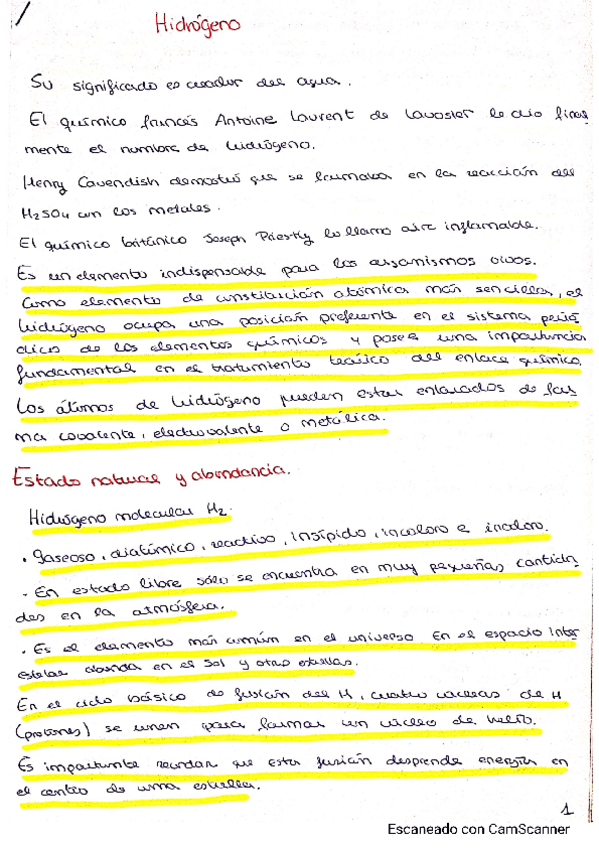 Hidrógeno
Su significado es creador del agua.
El químico francés Antoine Laurent de Lavosier le dio final
mente el nombre de hidrógeno.
Henry Cavendish demostró que se formaba en la reacción del
H2SO4 con los metales.
El químico británico Joseph Priestly lo llamo aire inflamable.
Es un elemento indispensable para los organismos vivos.
Como elemento de constitución atómica más sencilla, el
hidrógeno ocupa una posición preferente en el sistema perió
dico de los elementos químicos y posee una importancia
fundamental en el tratamiento teórico del enlace químico.
Los átomos de hidrógeno pueden estar enlazados de for
ma covalente, electrovalente o metálica.
Estado natural y abundancia.
Hidrógeno molecular H2.
· gaseoso, diatómico, reactivo, insípido, incoloro e inodoro.
· En estado libre sólo se encuentra en muy pequeñas cantida
des en la atmósfera.
· Es el elemento más común en el universo En el espacio inter
estelar abunda en el Sol y otras estrellas.
En el ciclo básico de fusión del H, cuatro núcleos de H
(protones) se unen para formar un núcleo de helio.
Es importante recordar que esta fusión desprende energía en
el centro de una estrella.
1
Escaneado con CamScanner